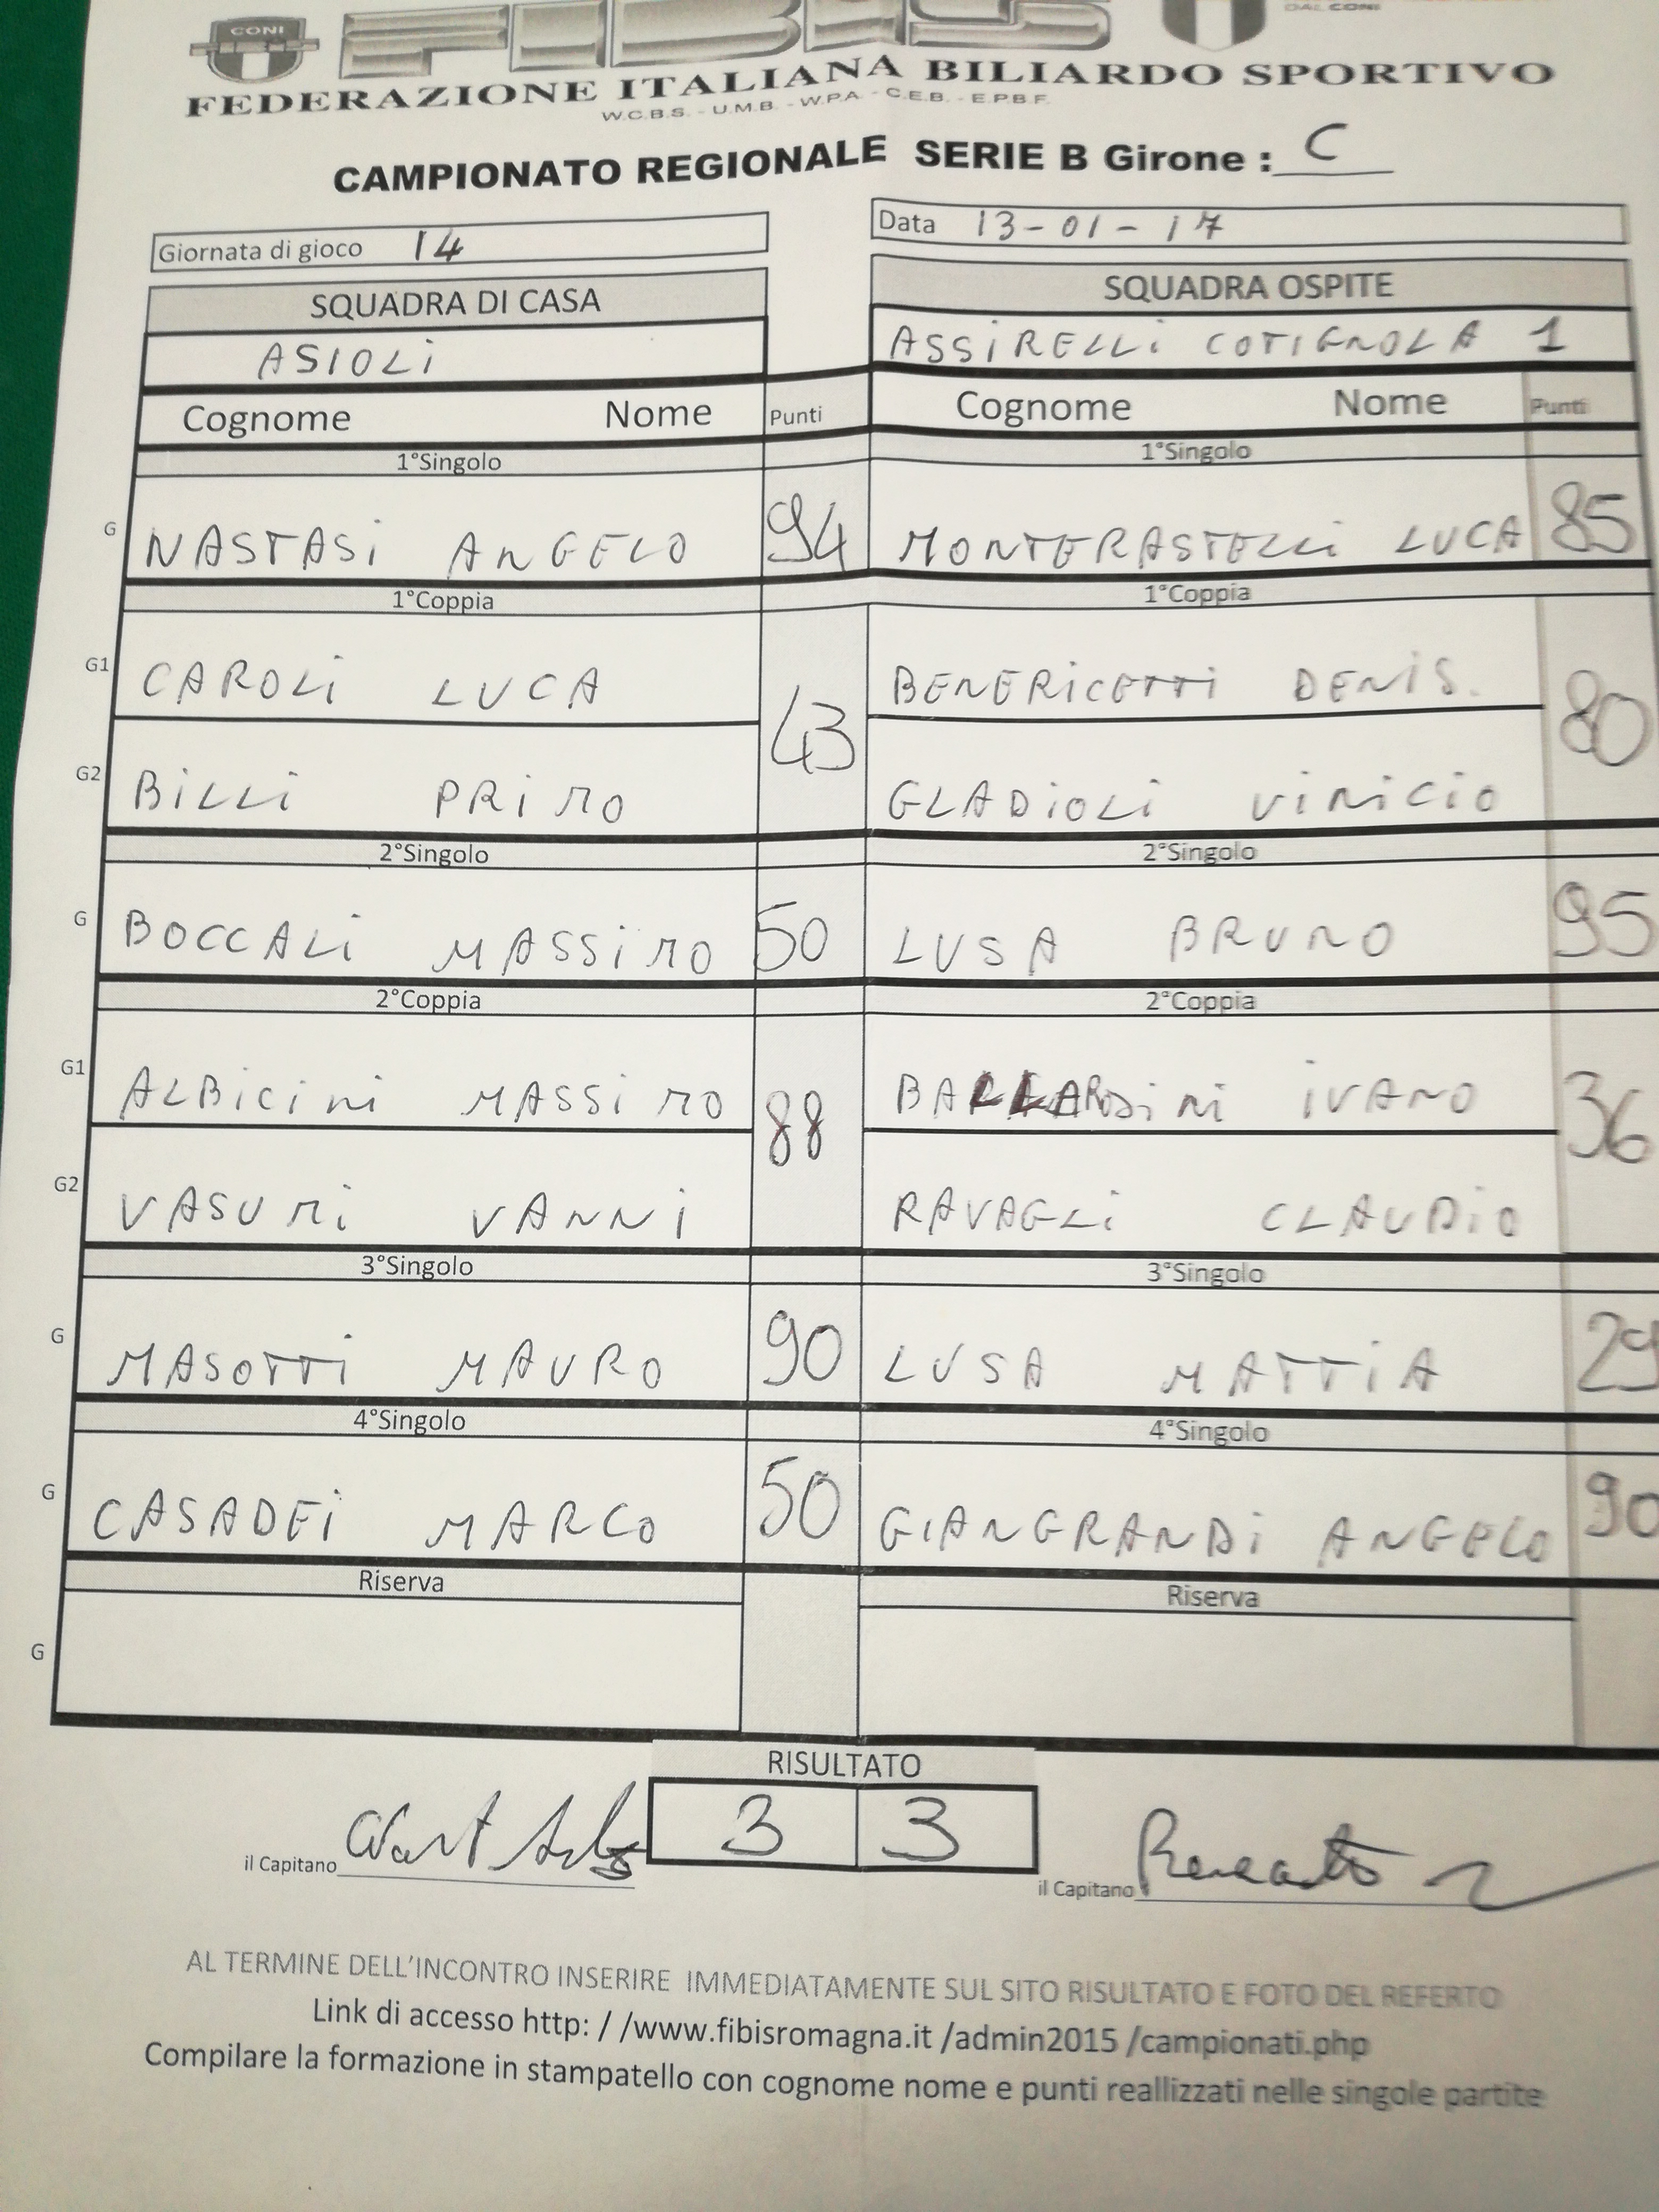 CONI FIBIS DAL CONI
FEDERAZIONE ITALIANA BILIARDO SPORTIVO
W.C.B.S. - U.M.B. - W.P.A - C.E.B. - E.P.B.F.
CAMPIONATO REGIONALE SERIE B Girone : C
Giornata di gioco 14 Data 13-01-17
SQUADRA DI CASA SQUADRA OSPITE
ASIOLI ASSIRELLI COTIGNOLA 1
Cognome Nome Punti Cognome Nome Punti
1°Singolo 1°Singolo
G NASTASI ANGELO 94 MONTERASTELLI LUCA 85
1°Coppia 1°Coppia
G1 CAROLI LUCA BENERICETTI DENIS.
43 80
G2 BILLI PRIMO GLADIOLI VINICIO
2°Singolo 2°Singolo
G BOCCALI MASSIMO 50 LUSA BRUNO 95
2°Coppia 2°Coppia
G1 ALBICINI MASSIMO IVANO
88 36
G2 VASUMI VANNI RAVAGLI CLAUDIO
3°Singolo 3°Singolo
G MASOTTI MAURO 90 LUSA MATTIA 29
4°Singolo 4°Singolo
G CASADEI MARCO 50 GIANGRANDI ANGELO 90
Riserva Riserva
G
RISULTATO
3 3
il Capitano il Capitano
AL TERMINE DELL'INCONTRO INSERIRE IMMEDIATAMENTE SUL SITO RISULTATO E FOTO DEL REFERTO
Link di accesso http: / /www.fibisromagna.it /admin2015 /campionati.php
Compilare la formazione in stampatello con cognome nome e punti reallizzati nelle singole partite